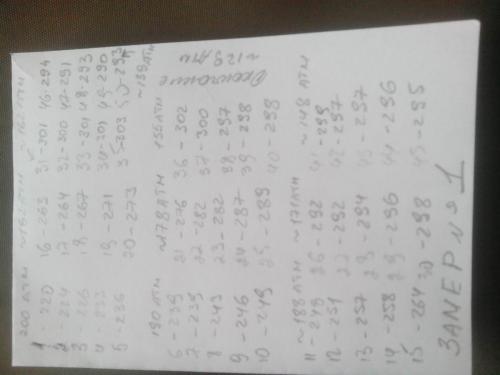 200 АТМ ~182 АТМ ~162 АТМ
1 - 220 16 - 263 31 - 301 46 - 294
2 - 224 17 - 264 32 - 300 47 - 291
3 - 226 18 - 267 33 - 301 48 - 293
4 - 233 19 - 271 34 - 301 49 - 290
5 - 236 20 - 273 35 - 303 50 - 293
~139 АТМ
190 АТМ ~178 АТМ 155 АТМ Окончание
6 - 239 21 - 276 36 - 302 ~129 АТМ
7 - 239 22 - 282 37 - 300
8 - 243 23 - 282 38 - 297
9 - 246 24 - 287 39 - 298
10 - 249 25 - 289 40 - 298
~188 АТМ ~171 АТМ ~148 АТМ
11 - 249 26 - 292 41 - 298
12 - 251 27 - 292 42 - 297
13 - 257 28 - 294 43 - 297
14 - 258 29 - 296 44 - 296
15 - 264 30 - 298 45 - 295
ЗАМЕР №1